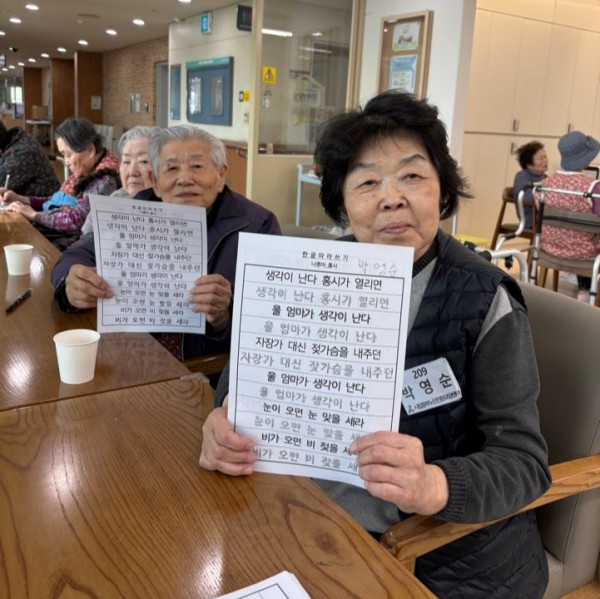 한글 따라쓰기
나훈아_홍시
박영순
생각이 난다 홍시가 열리면
생각이 난다 홍시가 열리면
울 엄마가 생각이 난다
울 엄마가 생각이 난다
자장가 대신 젖가슴을 내주던
자장가 대신 젖가슴을 내주던
울 엄마가 생각이 난다
울 엄마가 생각이 난다
눈이 오면 눈 맞을 세라
눈이 오면 눈 맞을 세라
비가 오면 비 젖을 세라
비가 오면 비 젖을 세라
209
박영순
한글 따라쓰기
생각이 난다 홍시가 열리면
생각이 난다 홍시가 열리면
울 엄마가 생각이 난다
울 엄마가 생각이 난다
자장가 대신 젖가슴을 내주던
자장가 대신 젖가슴을 내주던
울 엄마가 생각이 난다
울 엄마가 생각이 난다
눈이 오면 눈 맞을 세라
눈이 오면 눈 맞을 세라
비가 오면 비 젖을 세라
비가 오면 비 젖을 세라